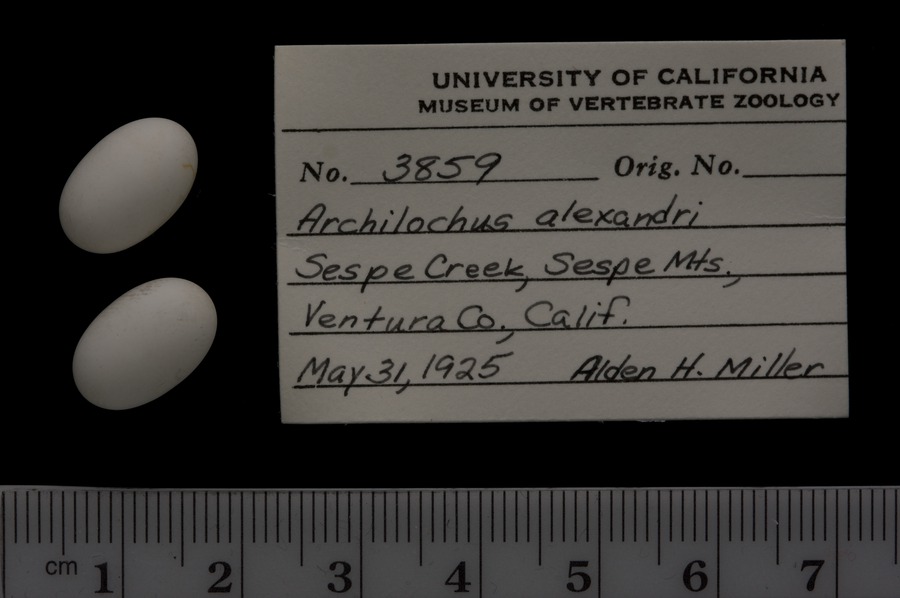 UNIVERSITY OF CALIFORNIA
MUSEUM OF VERTEBRATE ZOOLOGY
No. 3859 Orig. No.
Archilochus alexandri
Sespe Creek, Sespe Mts.,
Ventura Co., Calif.
May 31, 1925 Alden H. Miller
cm 1 2 3 4 5 6 7